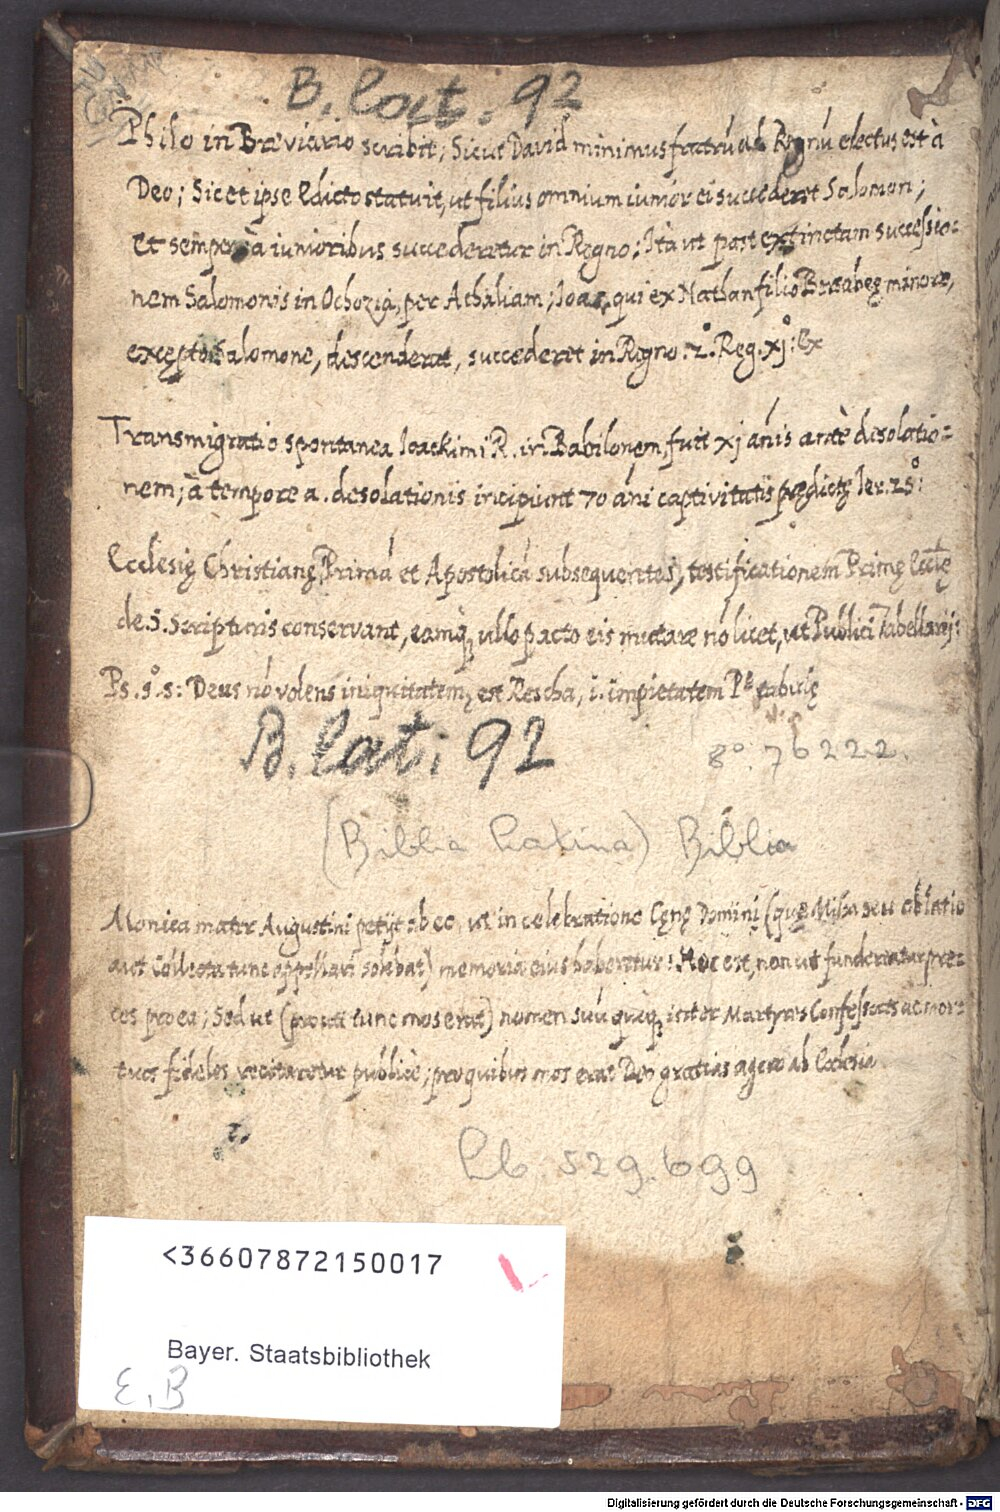 B. lat. 92
Philo in Breviario scribit; Sicut David minimus fratrũ ad Regnũ electus est à
Deo; Sic et ipse Edicto statuit, ut filius omnium iunior ei succederet Salomon;
et semper à iunioribus succederetur in Regno: Ita ut post extinctam successio=
nem Salomonis in Ochozia, per Athaliam; Ioas, qui ex Nathan filio Bersabeę minore,
excepto Salomone, descenderat, succederet in Regno. 2º. Reg. xjº:
Transmigratio spontanea Ioackimi R. in Babilonem, fuit xj añis antè desolatio=
nem; à tempore a. desolationis incipiunt 70 ãni captivitatis prędictę Ier. 25º:
Ecclesię Christianę, Primã et Apostolicã subsequentes, testificationem Primę Ecclię
de S. Scripturis conservant, eamq; ullo pacto eis mutare nõ licet, ut Publici Tabellarij:
Ps. 5º. 5: Deus nõ volens iniquitatem, est Rescha, i. impietatem
B. lat. 92
8º. 76222.
(Biblia Latina) Biblia
Monica mater Augustini petijt ab eo, ut in celebratione Cęnę Domini (quę Missa seu oblatio
aut Collecta tunc appellari solebat) memoria eius haberetur: Hoc est, non ut funderentur pre=
ces pro ea; Sed ut (prout tunc mos erat) nomen suũ quoq; inter Martyres Confessores ac mor=
tuos fideles recitaretur publicè; pro quibus mos erat Deo gratias agere ab Ecclesia.
Cb. 529.699
<36607872150017
Bayer. Staatsbibliothek
E, B
Digitalisierung gefördert durch die Deutsche Forschungsgemeinschaft - DFG